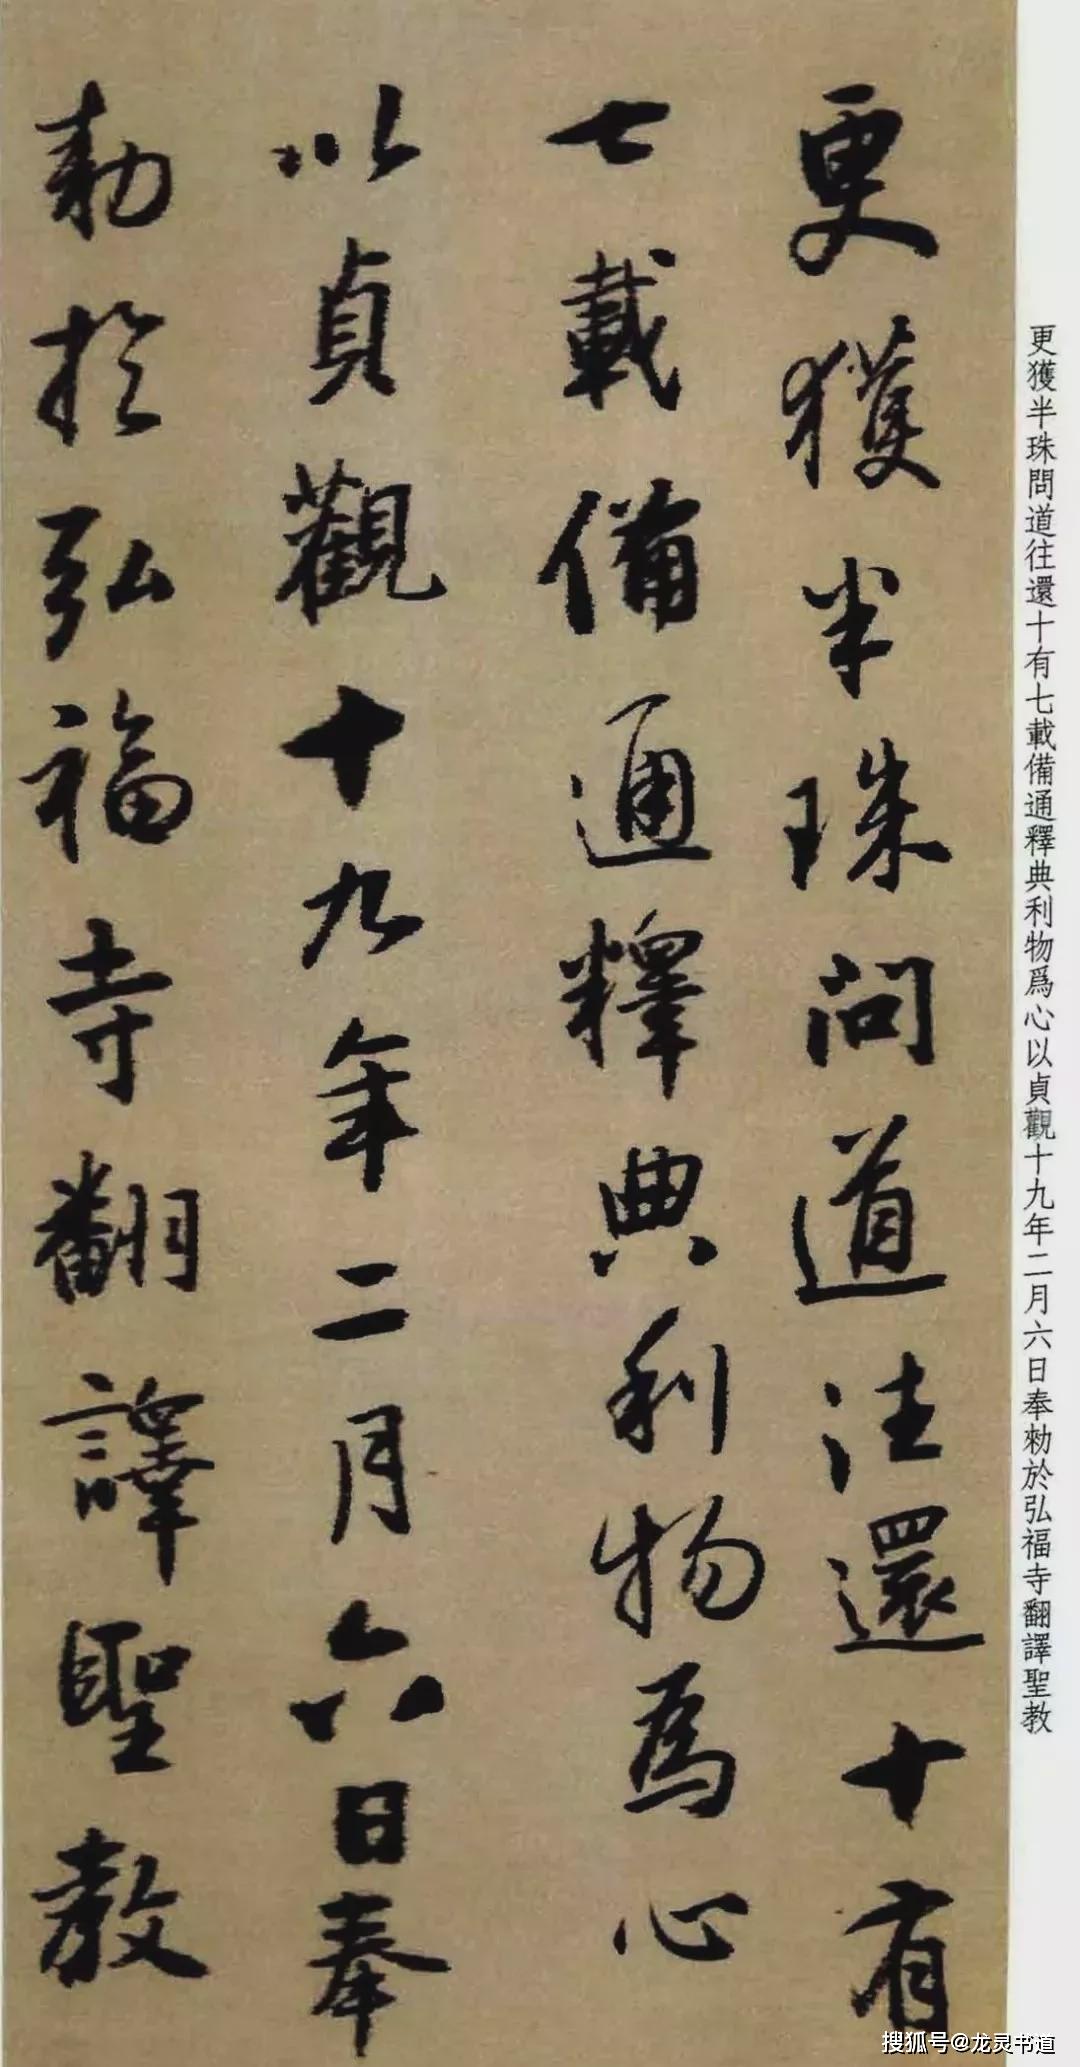 更獲半珠問道往還十有七載備通釋典利物爲心以貞觀十九年二月六日奉勑於弘福寺翻譯聖教
更獲半珠問道往還十有
七載備通釋典利物為心
以貞觀十九年二月六日奉
勑於弘福寺翻譯聖教
搜狐号@龙灵书道